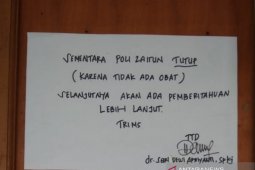 SEMENTARA POLI ZAITUN TUTUP
(KARENA TIDAK ADA OBAT)
SELANJUTNYA AKAN ADA PEMBERITAHUAN
LEBIH LANJUT.
TRIMS
TTD
dr. Dewi SpKj
ANTARANEWS